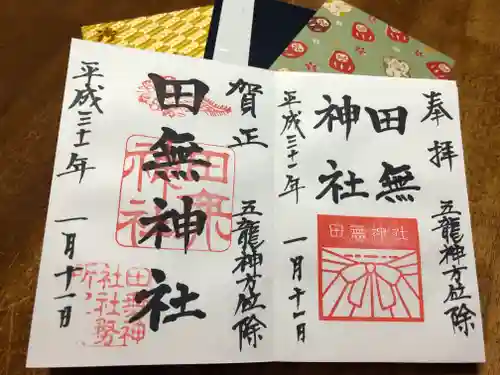 奉拝
五龍神方位除
田無
神社
田無神社
平成三十一年
一月十一日
賀正
五龍神方位除
田無神社
田無
神社
平成三十一年
一月十一日
田無神
社社務
所